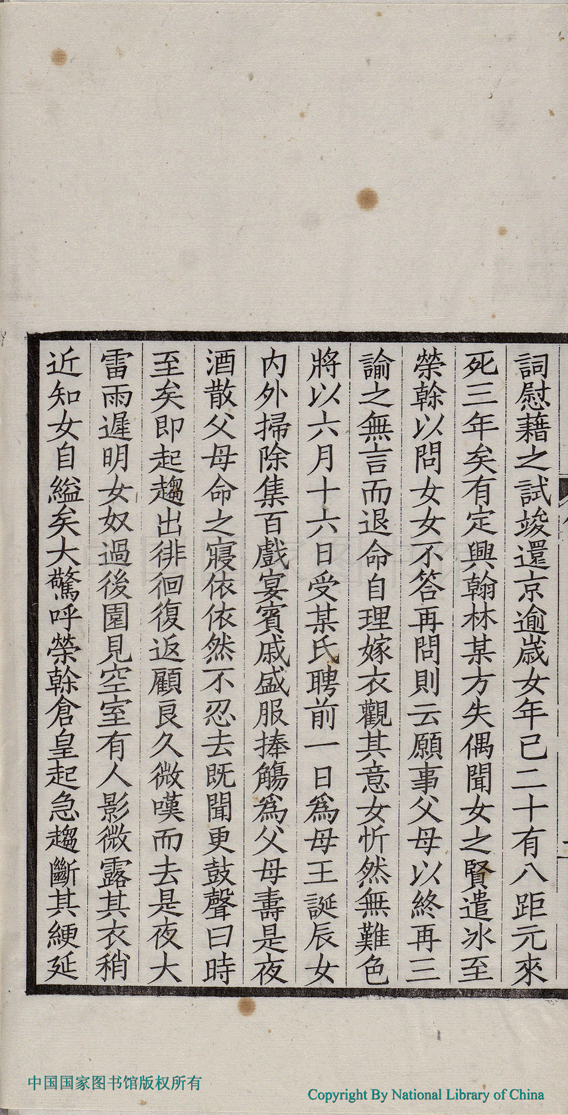 詞慰藉之試竣還京逾歲女年已二十有八距元來
死三年矣有定興翰林某方失偶聞女之賢遣冰至
榮幹以問女女不答再問則云願事父母以終再三
諭之無言而退命自理嫁衣觀其意女忻然無難色
將以六月十六日受某氏聘前一日為母王誕辰女
内外掃除集百戲宴賓戚盛服捧觴為父母壽是夜
酒散父母命之寢依依然不忍去既聞更鼓聲曰時
至矣即起趨出徘徊復返顧良久微嘆而去是夜大
雷雨遲明女奴過後園見空室有人影微露其衣稍
近知女自縊矣大驚呼榮幹倉皇起急趨斷其綆延
中国国家图书馆版权所有
Copyright By National Library of China